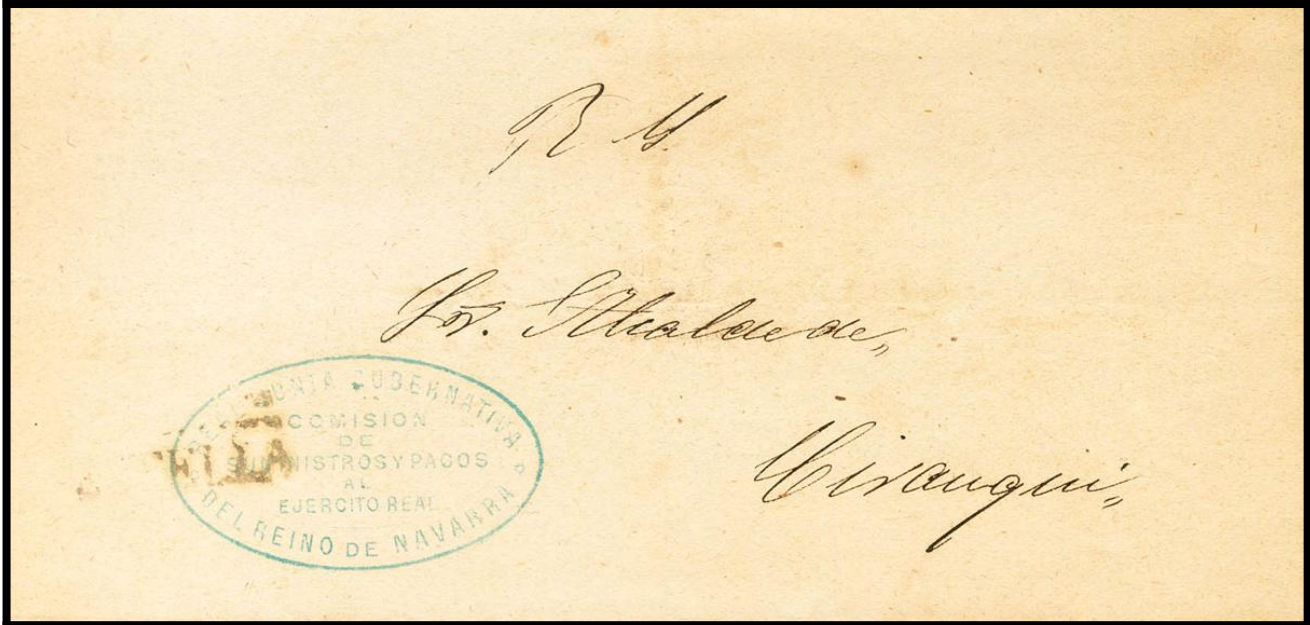 R. S.
Sor. Alcalde de,,
Cirauqui,,
REAL JUNTA GUBERNATIVA
COMISION
DE
SUMINISTROS Y PAGOS
AL
EJERCITO REAL
DEL REINO DE NAVARRA